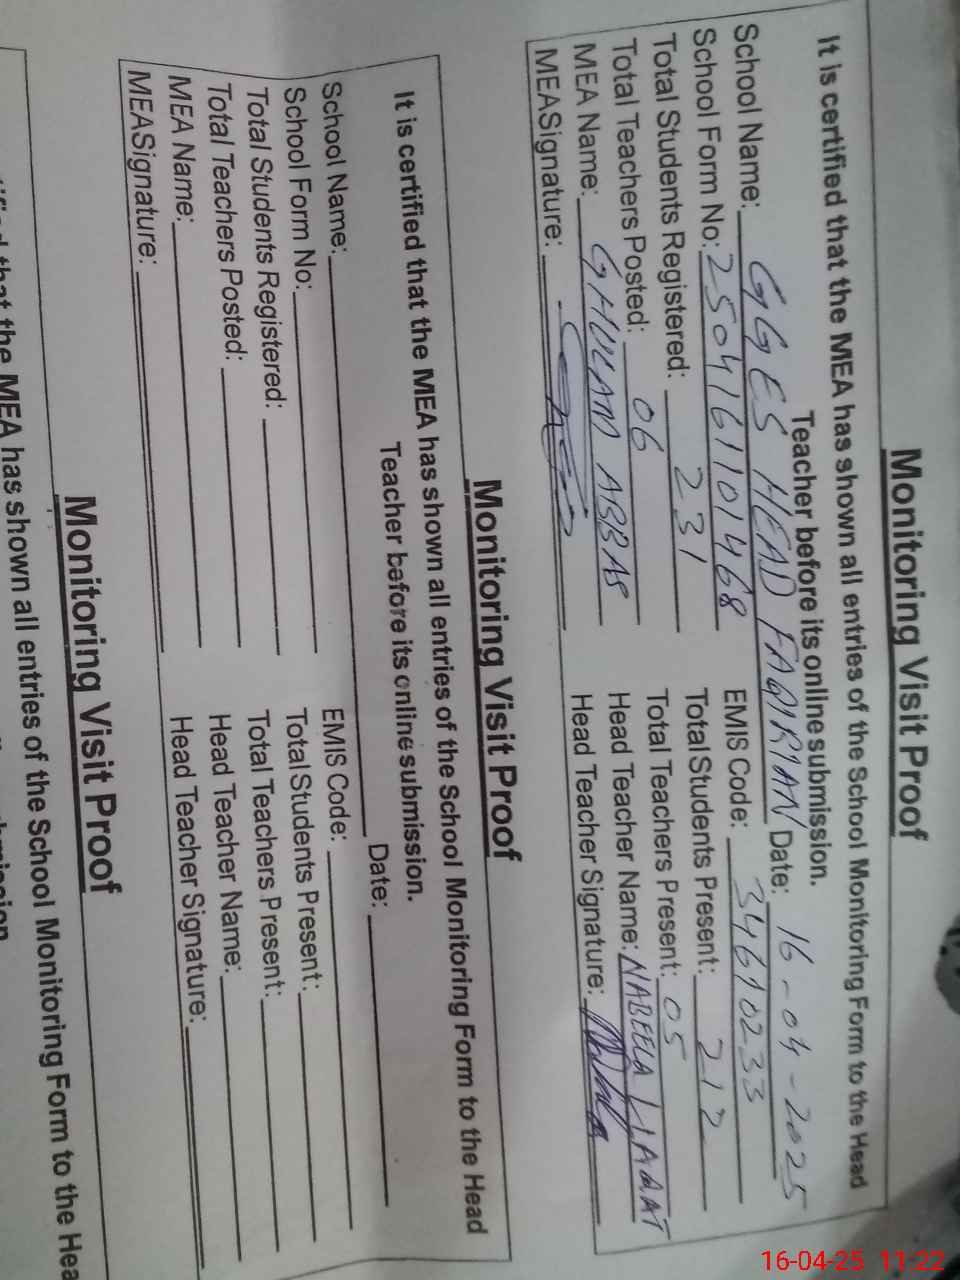 Monitoring Visit Proof
It is certified that the MEA has shown all entries of the School Monitoring Form to the Head
Teacher before its online submission.
School Name: GGES HEAD FAQIRIAN Date: 16-04-2025
School Form No: 2504161101468 EMIS Code: 34610233
Total Students Registered: 231 Total Students Present: 212
Total Teachers Posted: 06 Total Teachers Present: 05
MEA Name: GHULAM ABBAS Head Teacher Name: NABEELA LIAQAT
MEASignature: Head Teacher Signature:
Monitoring Visit Proof
It is certified that the MEA has shown all entries of the School Monitoring Form to the Head
Teacher before its online submission.
School Name: Date:
School Form No: EMIS Code:
Total Students Registered: Total Students Present:
Total Teachers Posted: Total Teachers Present:
MEA Name: Head Teacher Name:
MEASignature: Head Teacher Signature:
Monitoring Visit Proof
that the MEA has shown all entries of the School Monitoring Form to the Hea
16-04-25 11:22